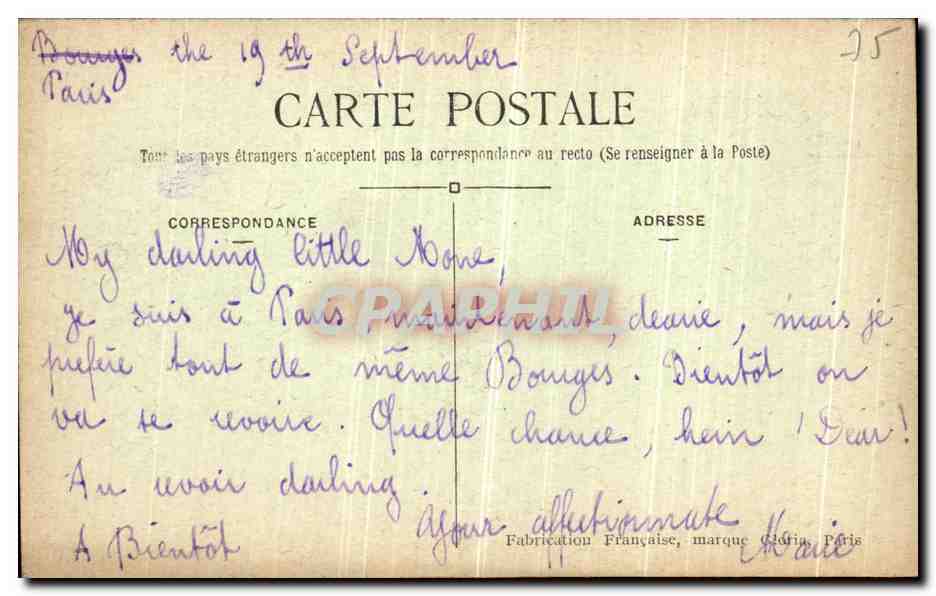 Bourges the 19th September 75
Paris
CARTE POSTALE
Tous les pays étrangers n'acceptent pas la correspondance au recto (Se renseigner à la Poste)
CORRESPONDANCE
ADRESSE
My darling little Mone,
CPARHTL
je suis à Paris, maintenant, dearie, mais je
préfère tout de même Bourges. Bientôt on
va se revoire. Quelle chance, hein! Dear!
Au revoir darling.
Your affectionnate
A Bientôt
Marie
Fabrication Française, marque Gloria, Paris